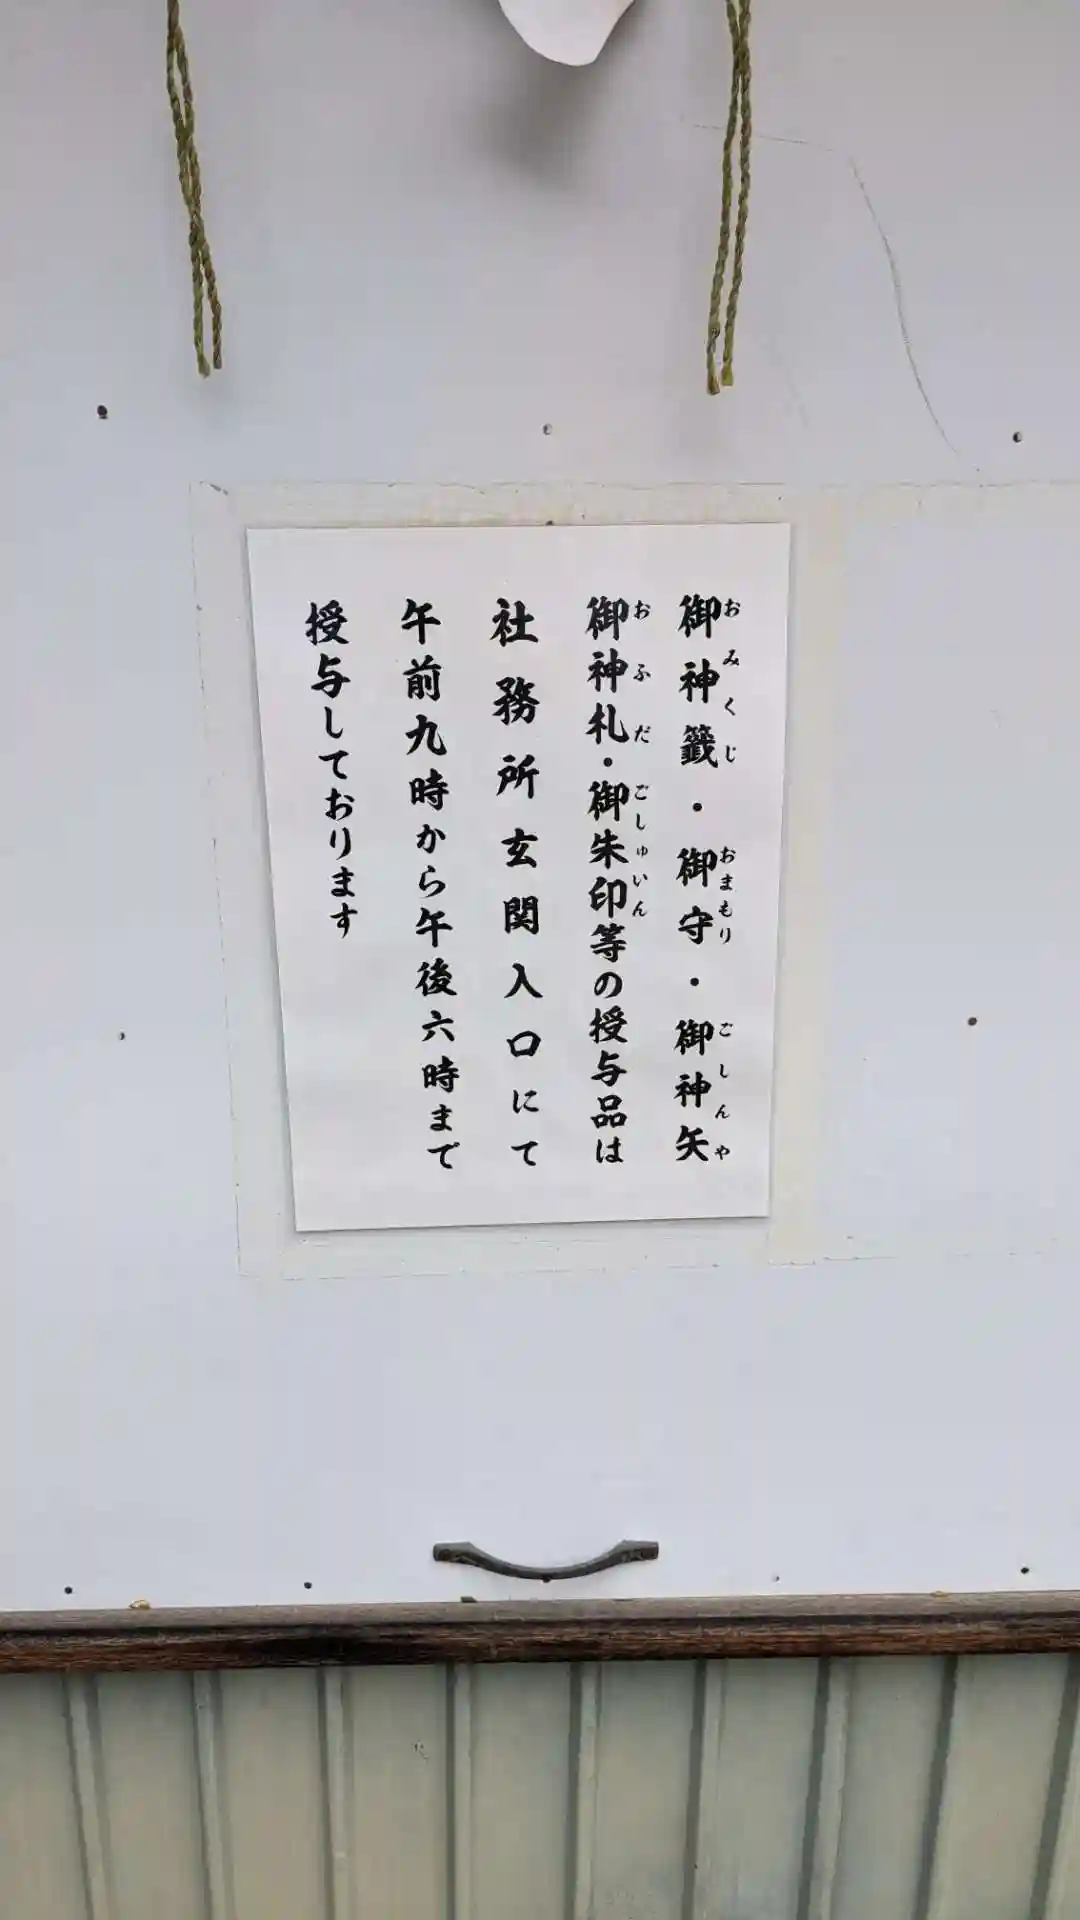 御神籤・御守・御神矢
おみくじ おまもり ごしんや
御神札・御朱印等の授与品は
おふだ ごしゅいん
社務所玄関入口にて
午前九時から午後六時まで
授与しております